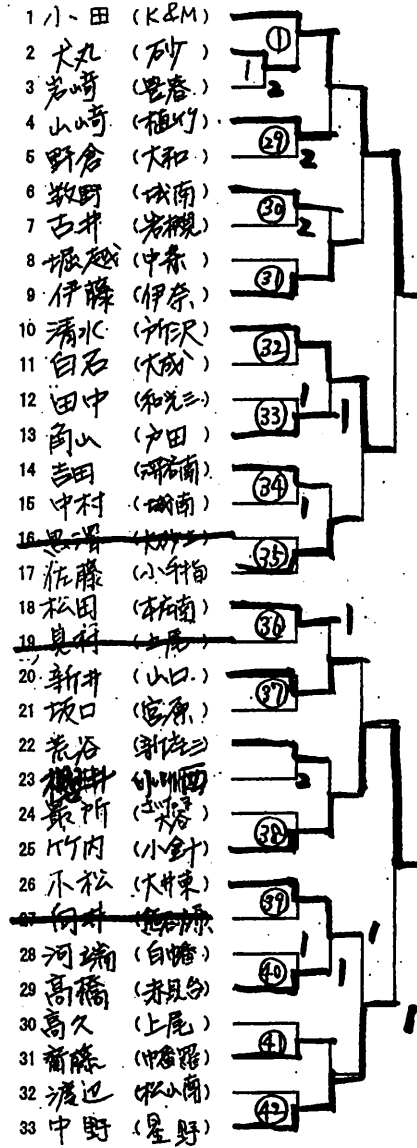 1 小田 (K&M)
2 犬丸 (砂)
3 岩崎 (豊春)
4 山崎 (植竹)
5 野倉 (大和)
6 牧野 (城南)
7 古井 (岩槻)
8 堀越 (中条)
9 伊藤 (伊奈)
10 清水 (所沢)
11 白石 (大成)
12 田中 (和光三)
13 角山 (戸田)
14 吉田
15 中村 (城南)
16
17 佐藤 (小手指)
18 松田 (本庄南)
19 見村 (上尾)
20 新井 (山口)
21 坂口 (宮原)
22 荒谷 (新座三)
23
24 最所 (大谷)
25 竹内 (小針)
26 小松 (大井東)
27 向井
28 河端 (白幡)
29 高橋 (赤見台)
30 高久 (上尾)
31 齋藤
32 渡辺 (松山南)
33 中野 (星野)
① 1 2
㉙ 2
㉚ 2
㉛
㉜
㉝ 1 1
㉞ 1
㉟
㊱ 1
㊲
2
㊳
㊴ 1
㊵ 1 1
㊶
㊷ 1